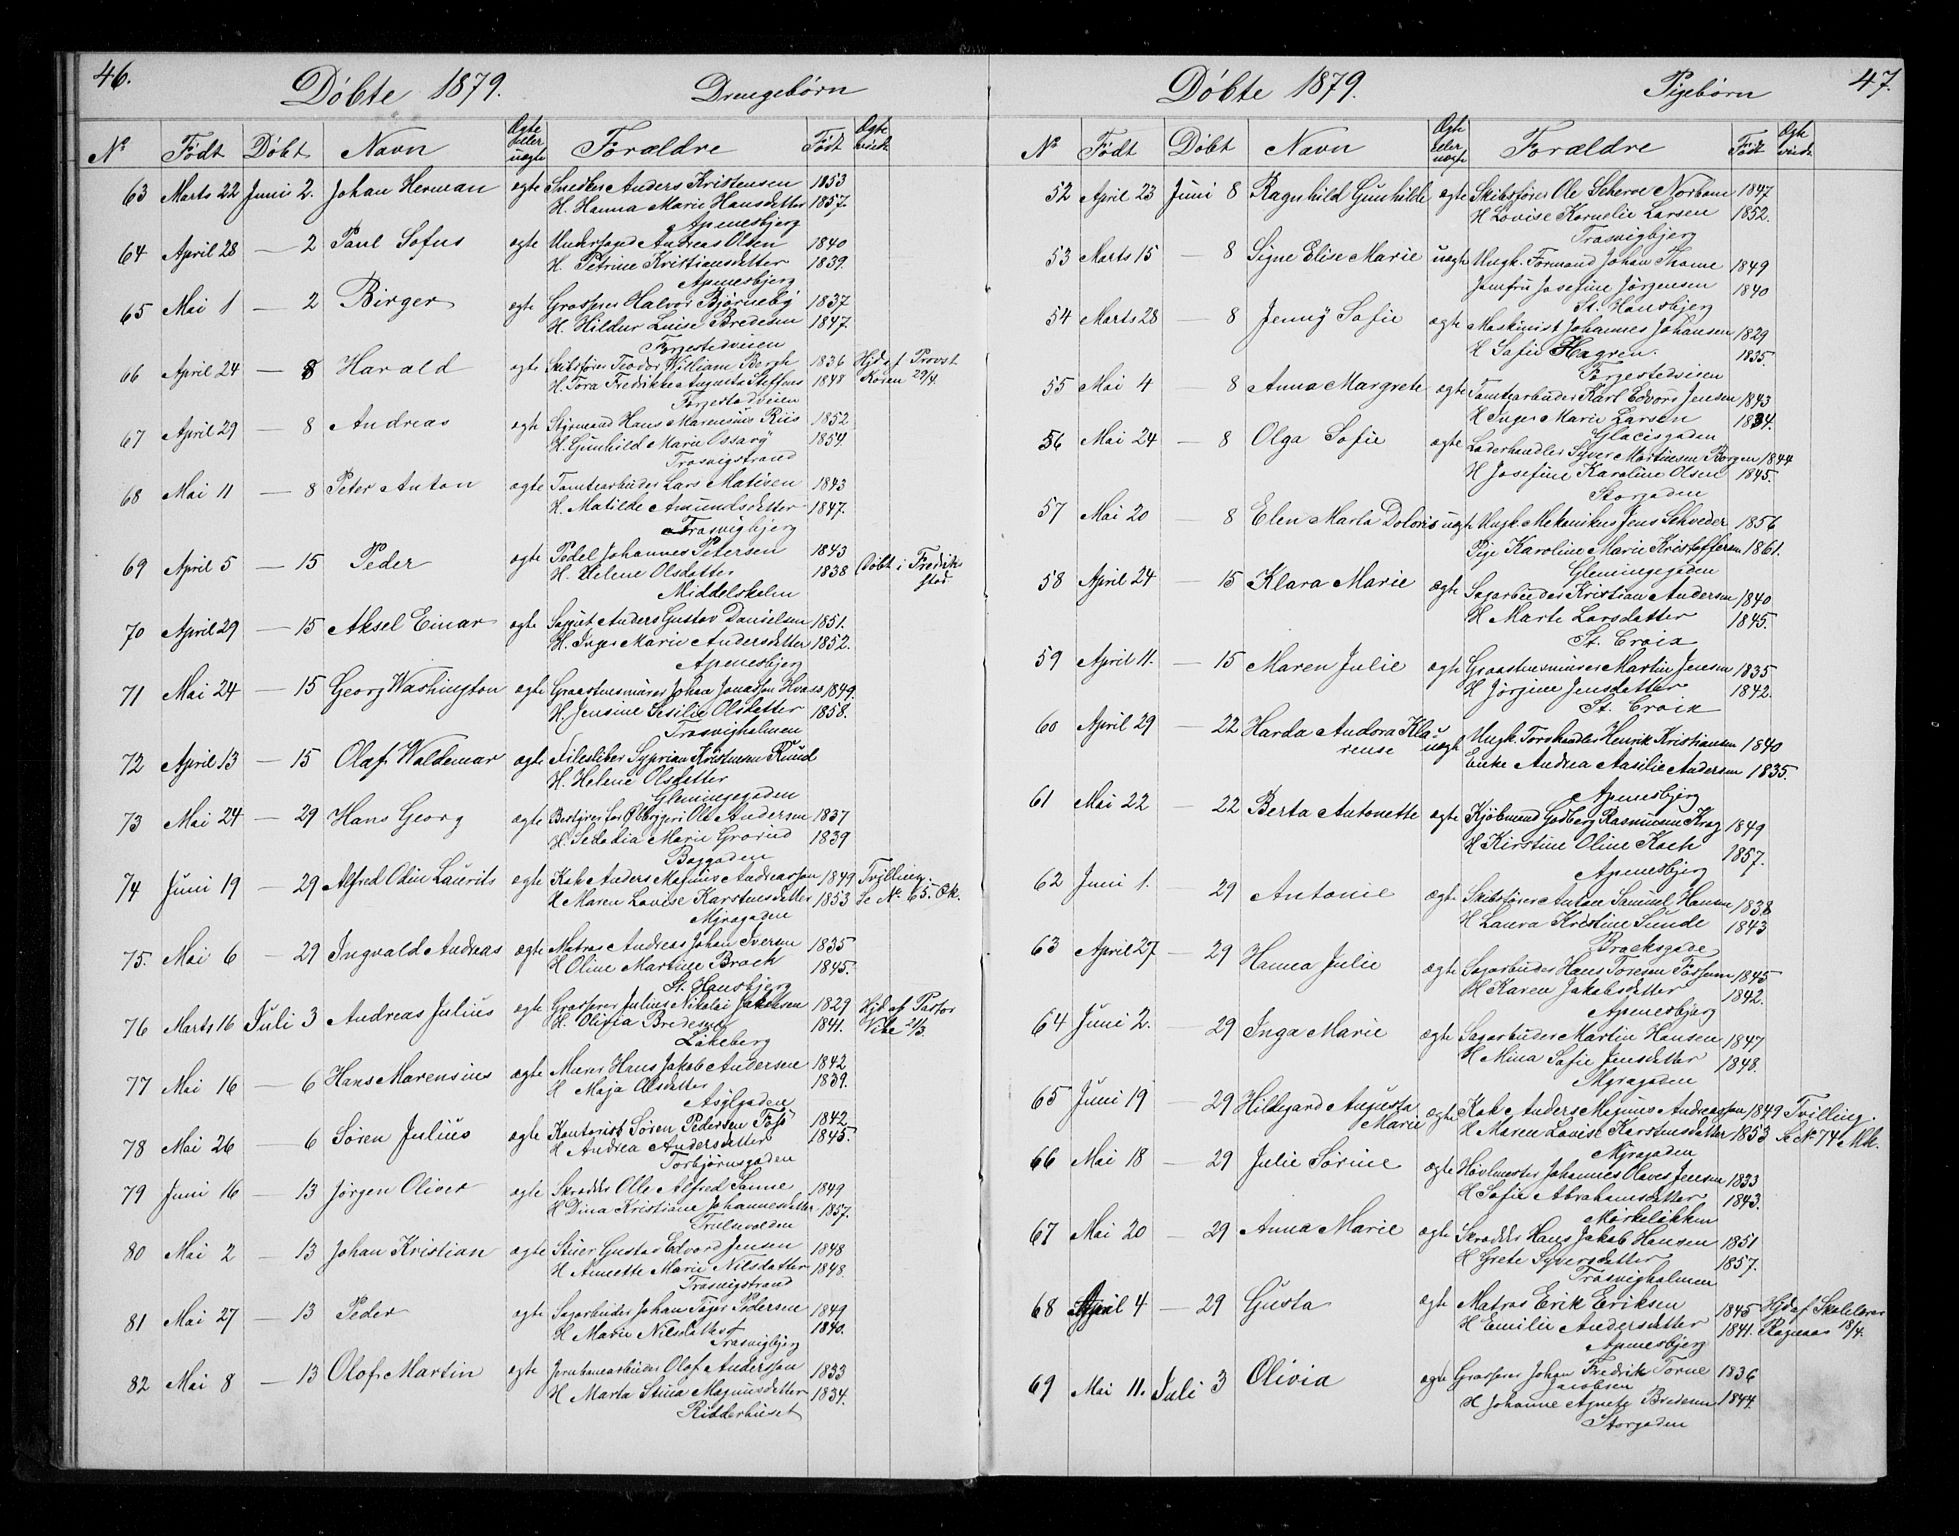 46.
Døbte 1879. Drengebørn
Nº Født Døbt Navn Ægte eller uægte Forældre Født
63 Marts 22 Juni 2. Johan Herman ægte Snedker Anders Kristensen 1853
H. Hanna Marie Hansdatter 1857.
Apenesbjerg
64 April 28 — 2 Paul Sofus ægte Andreas Olsen 1840
H. Petrine Kristiansdatter 1839.
Apenesbjerg
65 Mai 1 — 2 Birger ægte Grosserer Halvor Bjørneby 1837
H. Hildur Luise Bredesen 1847.
Torpestedveien
66 April 24 — 8 Harald ægte Skibsfører Teodor William Bergh 1836 Hjd af Provst
H. Tora Fredrikke Augusta Steffens 1848 Koren 29/4.
Torpestedveien
67 April 29 — 8 Andreas ægte Styrmand Hans Marensius Riis 1852
H. Gunhild Marie Ossary 1854
Trosvigstrand
68 Mai 11 — 8 Peter Anton ægte Tomtearbeider Lars Matisen 1843
H. Matilde Amundsdatter 1847.
Trosvigbjerg
69 April 5 — 15 Peder ægte Pedel Johannes Petersen 1843
H. Helene Olsdatter 1838 Døbt i Fredrikstad
Middelskolen
70 April 29 — 15 Aksel Einar ægte Anders Gustav Danielsen 1851.
H. Inger Marie Andersdatter 1852.
Apenesbjerg
71 Mai 24 — 15 Georg Washington ægte Graastensmurer Johan Jonassøn Hvaas 1849.
H. Jensine Sesilie Olsdatter 1858.
Trosvigholmen
72 April 13 — 15 Olaf Waldemar ægte Syprian Kristensen Ruud
H. Helene Olsdatter
Glemingegaden
73 Mai 24 — 29 Hans Georg ægte Bestyrer for Ølbryggeri Ole Andersen 1837
H. Marie Grorud 1839
Baggaden
74 Juni 19 — 29 Alfred Odin Laurits ægte Kok Anders Magnus Andreassøn 1849 Tvilling.
H Maren Lovise Karstensdatter 1853 Se Nº 65. Qk.
Myragaden
75. Mai 6 — 29 Ingvald Andreas ægte Matros Andreas Johan Iversen 1835
H Oline Martine Brock 1845.
St. Hansbjerg
76 Marts 16 Juli 3 Andreas Julius ægte Grosserer Julius Nikolai Jakobsen 1829 Hjd af Pastor
H. Olivia Bredesen 1841. Vibe 21/3.
Løkeberg
77 Mai 16 — 6 Hans Marensius ægte Murer Hans Jakob Andersen 1842
H Maja Olsdatter 1839.
Asylgaden
78 Mai 26 6 Søren Julius ægte Kontorist Søren Pedersen 1842
H Andrea Andersdatter 1845.
Torbjørnsgaden
79 Juni 16 — 13 Jørgen Oliver ægte Skrædder Olle Alfred Sanne 1849
H Dina Kristiane Johannesdatter 1857.
80 Mai 2 — 13 Johan Kristian ægte Gustav Edvard Jensen 1848
H Annette Marie Nilsdatter 1848.
Trosvigstrand
81 Mai 27 — 13 Peder ægte Sagarbeider Johan Pedersen 1849
H Marie Nilsdatter 1840.
Trosvigbjerg
82 Mai 8 — 13 Olof Martin ægte Jernbanearbeider Olof Andersson 1833
H Marta Stina Magnusdatter 1834.
Ridderhuset
47.
Døbte 1879. Pigebørn
Nº Født Døbt Navn Ægte eller uægte Forældre Født
52 April 23 Juni 8 Ragnhild Gunhilde ægte Skibsfører Ole Norbom 1847
H Lovise Kornelie Larsen 1852.
Trosvigbjerg
53 Marts 15 — 8 Signe Elise Marie uægte Ungk. Formand Johan Thome 1849
Jomfru Josefine Jørgensen 1840
St. Hansbjerg
54 Marts 28 — 8 Jenny Sofie ægte Maskinist Johannes Johansen 1829
H Sofie Hagren. 1835.
Torpestedveien
55 Mai 4 — 8 Anna Margrete ægte Tomtearbeider Karl Edvard Jensen 1843
H Inger Marie Larsen 1834.
Glacisgaden
56 Mai 24 — 8 Olga Sofie ægte Læderhandler Syver Martinsen Borgen 1844
H Josefine Karoline Olsen 1845.
Storgaden
57 Mai 20 8 Elen Marta Doloris uægte Ungk. Mekanikus Jens Schveder 1856
Pige Karoline Marie Kristoffersen 1861.
Glemingegaden
58 April 24 — 15 Klara Marie ægte Sagarbeider Kristian Andersen 1840
H Marte Larsdatter 1845.
St. Croix
59 April 11. — 15 Maren Julie ægte Graastensmurer Martin Jensen 1835
H Jørgine Jensdatter 1842.
St. Croix
60 April 29 — 22 Harda Andora Klarense uægte Ungk. Torvhandler Henrik Kristiansen 1840
Enke Andrea Aasilie Andersen 1835.
Apenesbjerg
61 Mai 22 — 22 Berta Antonette ægte Kjøbmand Godberg Rasmusen Krag 1849
H Kirstine Oline Koch 1857.
Apenesbjerg
62 Juni 1. 29 Antonie ægte Skibsfører Anton Samuel Hansen 1838
H Laura Kristine Sunde 1843
Brocksgade
63 April 27 — 29 Hanna Julie ægte Sagarbeider Hans Toresen Fossum 1845
H Karen Jakobsdatter 1842.
Apenesbjerg
64 Juni 2. — 29 Inga Marie ægte Sagarbeider Martin Hansen 1847
H Mina Sofie Jensdatter 1848.
Myragaden
65 Juni 19 — 29 Hildegard Augusta Marie ægte Kok Anders Magnus Andreassøn 1849 Tvilling.
H Maren Lovise Karstensdatter 1853 se Nº 74 Mk.
Myragaden
66 Mai 18 — 29 Julie Sørine ægte Høvlmester Johannes Olaves Jensen 1833
H Sofie Abrahamsdatter 1843.
Mørkeløkken
67 Mai 20 29 Anna Marie ægte Skrædder Hans Jakob Hansen 1851
H Grete Syversdatter 1857.
Trosvigholmen
68 April 4 — 29 Gusta ægte Matros Erik Eriksen 1845 Hjd af Skolelærer
H Emilie Andersdatter 1841. 18/4.
Apenesbjerg
69 Mai 11. Juli 3 Olivia ægte Grosserer Johan Fredrik Torne 1836
Jacobsen
H Johanne Agnete Bredesen 1844.
Storgaden